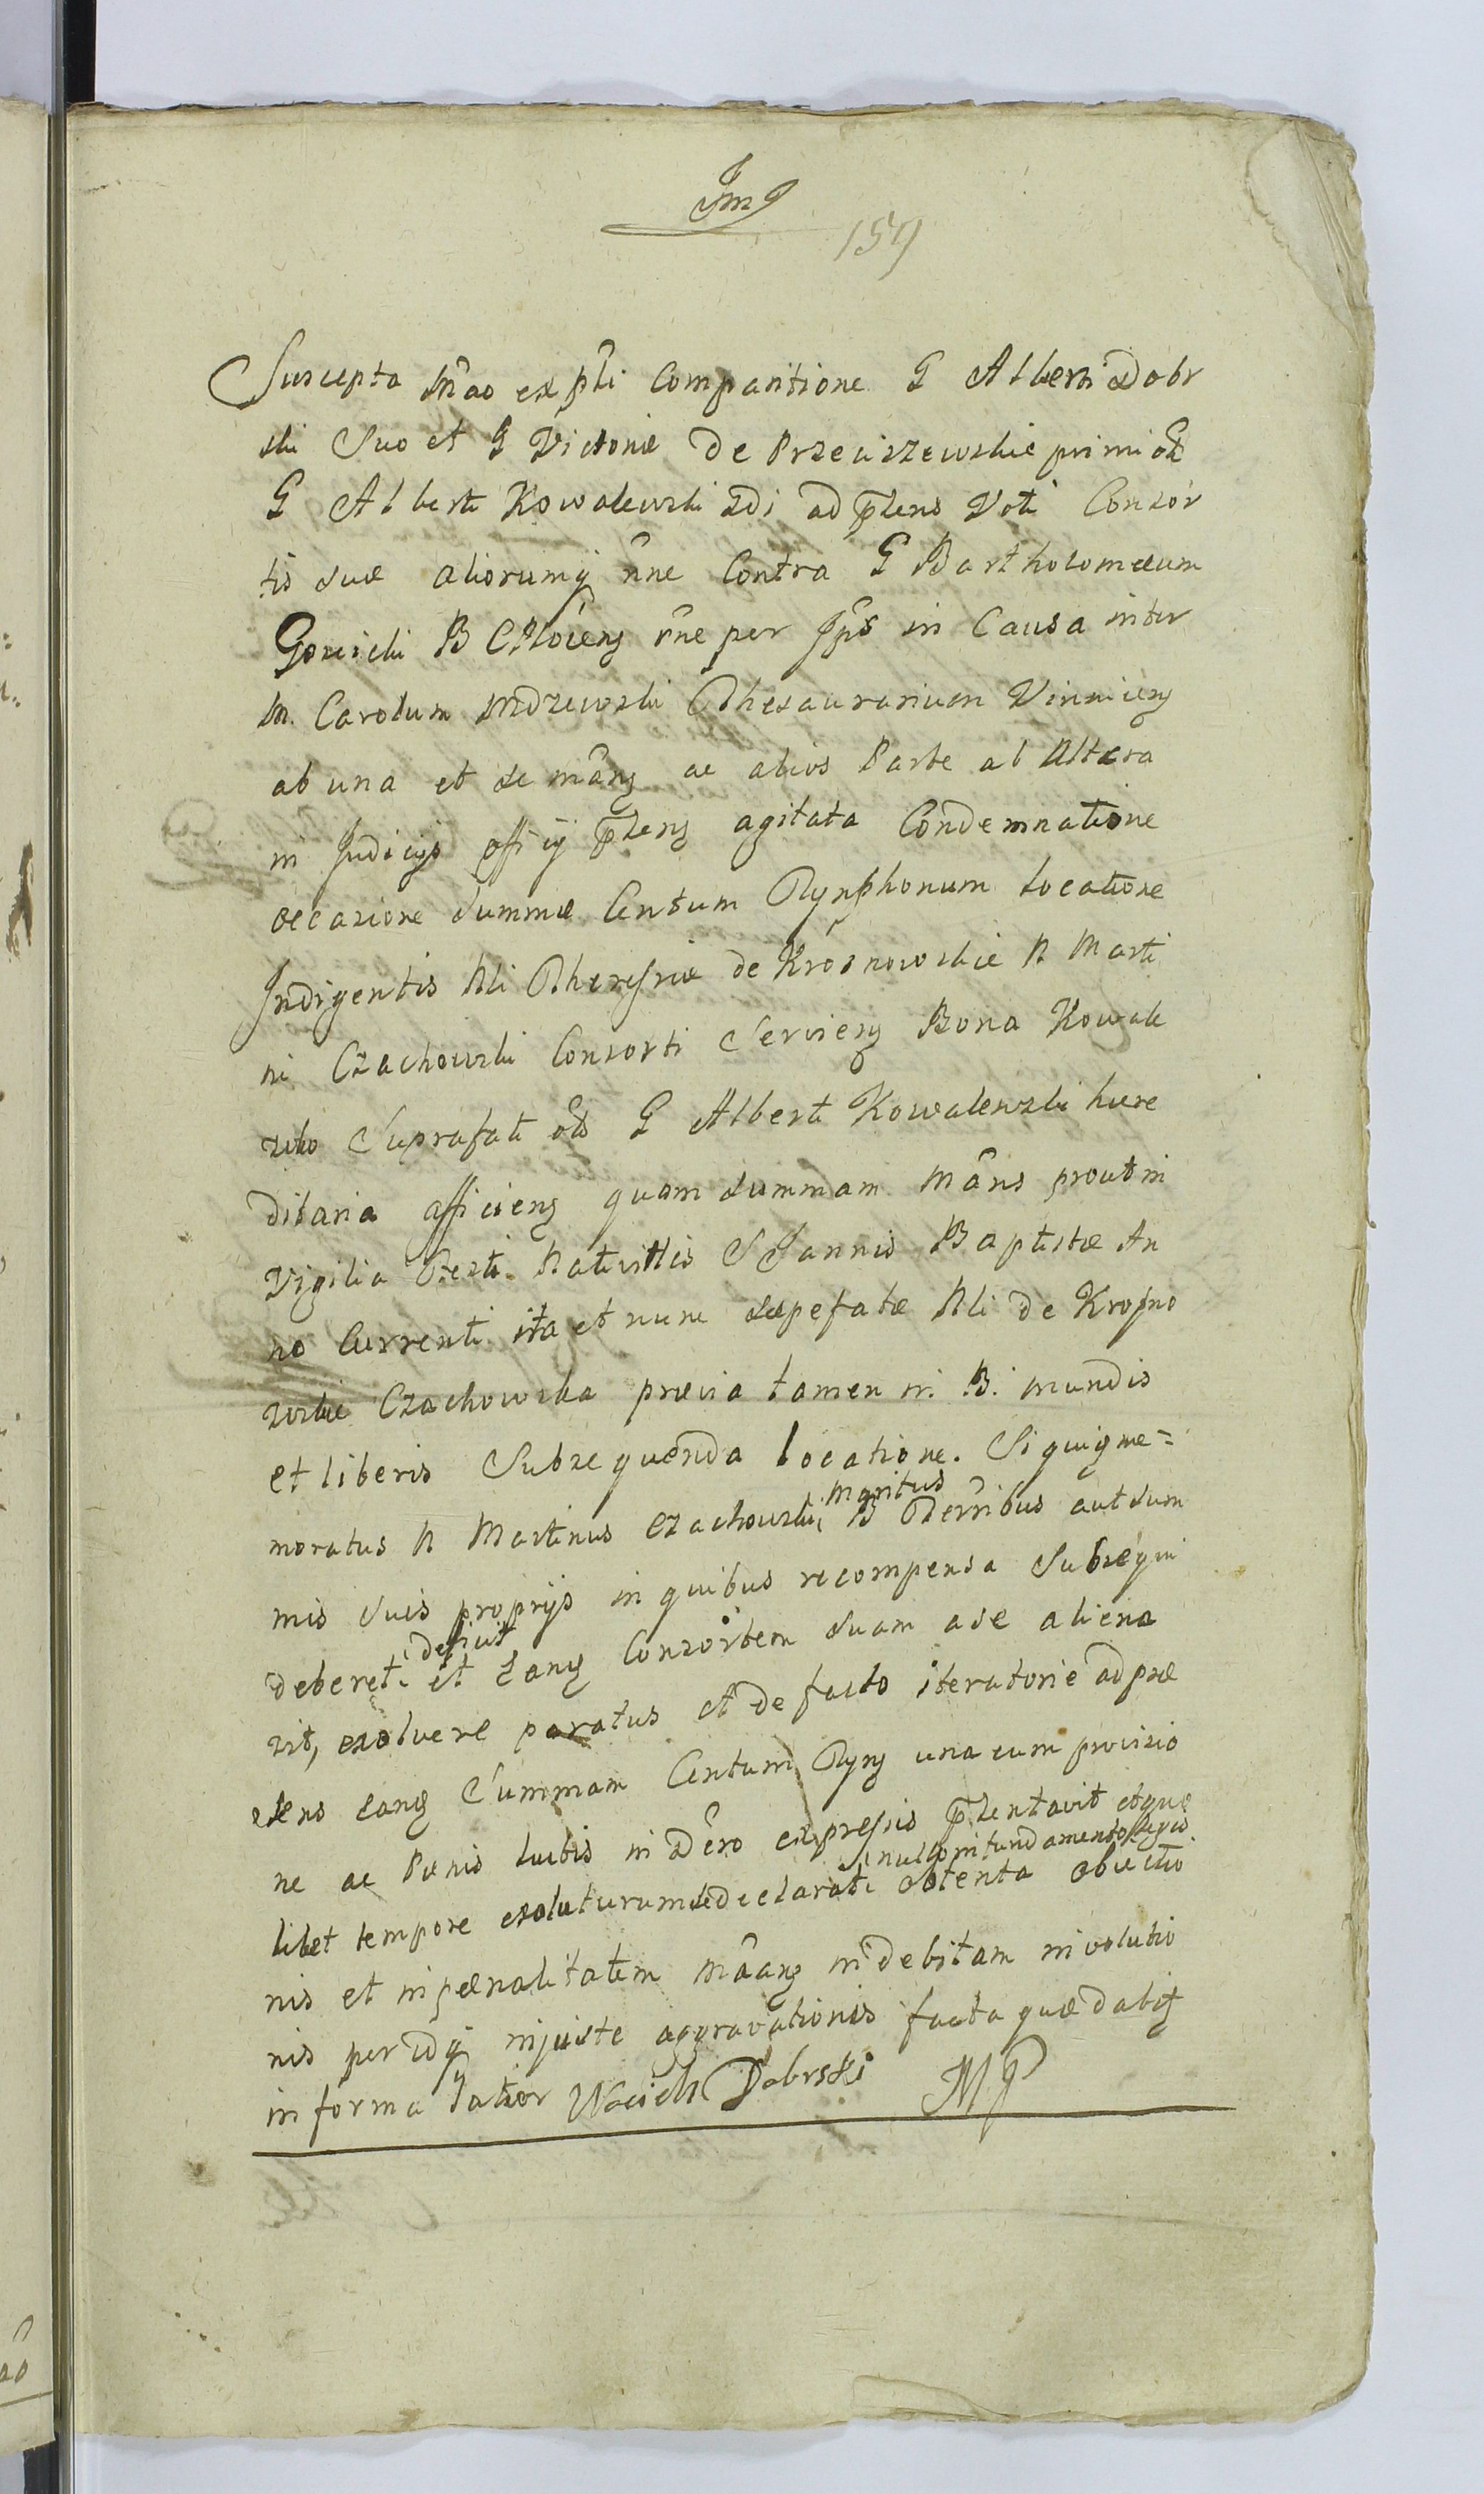 Jmq
159
Suscepta Mao expli Comparitione G Alberti Dobr
ski Suo et G Victoriæ De Przeciszewskie primi olim
G Alberti Kowalewski 2di ad præsens Voti Consor
tis suæ aliorumq nne Contra G Bartholomæum
Gorcicki B C Plocieng rne per Jps in Causa inter
M. Carolum Mdzewski Thesaurarium Vinnicieng
ab una et se Mang ac alios Parte ab Altera
in Judicijs offcij præseng agitata Condemnatione
occasione Summæ Centum Tynphonum Locatione
Indigentis Nli Theresiæ de Krosnowskie N Marti
ni Czachowski Consorti Servieng Bona Kowale
wsko Suprafati olis G Alberti Kowalewski hære
ditaria afficieng quam Summam Mans prout in
Vigilia Festi Nativittis S Joannis Baptistæ An
no Currenti ita et nunc sæpefatæ Nli de Krosno
wskie Czachowska prævia tamen in B. mundis
et liberis Subsequenda Locatione. Si quigme=
moratus N Martinus Czachowski, maritus B Terribus aut Sum
mis Suis proprijs in quibus recompensa Subsequi
deberet, deficit et eang Consortem Suam a se aliena
vit, exolvere paratus et de facto iteratorie ad præ
sens eang Summam Centum Tyng una cum provisio
ne ac Pænis luitis in Dcro expressis præsentavit etque
libet tempore exoluturum se declaravit nullo in fundamento legis obtenta obiectio
nis et in pænalitatem Maang indebitam involutio
nis peridq injuste aggravationis facta quæ dabitg
in forma latior Woiciech Dobrski Mp